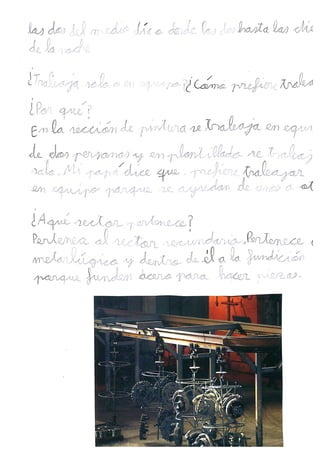 las dos del medio día o desde las dos hasta las die
de la noche
¿Trabaja solo o en equipo? ¿Cómo prefiere trabaj
¿Por qué?
En la sección de pintura se trabaja en equi
de dos personas y en plantillado se trabaj
solo. Mi papá dice que prefiere trabajar
en equipo porque se ayudan de unos a ot
¿A qué sector pertenece?
Pertenece al sector secundario. Pertenece a
metalúrgica y dentro de él a la fundición
porque funden acero para hacer piezas.